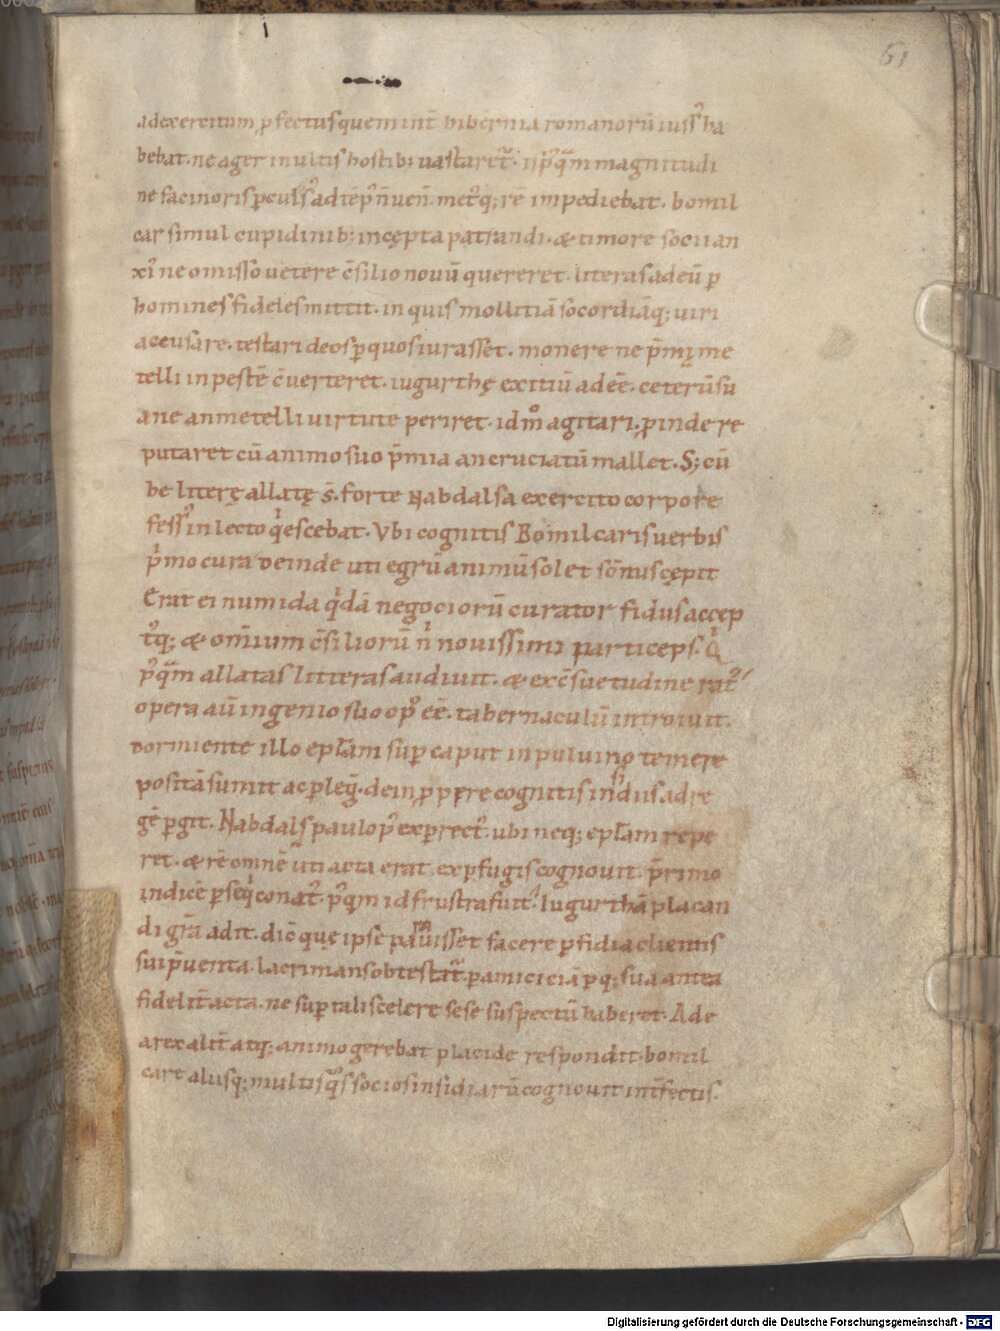 61
ad exercitum, p̱fectus quem int̄ hibernia romanorū iuss᾽ ha
bebat. ne ager inultis hostib; uastaret᷑. is p᾽q̄m magnitudi
ne facinoris ꝑculs᾽ ad tēp᾽ n̄ uen̄. met᾽q; rē impediebat. bomil
car simul cupidinib; incępta patrandi. & timore socii an
xi᾽ ne omisso uetere c̄silio nouū quereret. literas ad eū ꝑ
homines fideles mittit. in quis mollitiā socordiāq; uiri
accusare. testari deos ꝑ quos iurasset. monere ne p̄mię me
telli in pestē c̄uerteret. iugurthę exitiū adeē. ceterū su
ane an metelli uirtute periret. id m̊ agitari. ꝓinde re
putaret cū animo suo p̄mia an cruciatū mallet. S; cū
he literę allatę s̄. forte Nabdalsa exercito corpore
fess᾽ in lecto qͥescebat. Vbi cognitis Bomilcaris uerbis
pͥmo cura deinde uti egrū animū solet sōnus cępit
Erat ei numida qͥdā negociorū curator fidus accep
t᾽q; & omnium c̄siliorū nͥ nouissimi particeps. Qͥ
p᾽q̄m allatas litteras audiuit. & ex c̄suetudine rat᾽
opera aū ingenio suo op᾽ eē. tabernaculū introiuit.
dormiente illo epl̄am sup̱ caput in puluino temere
positā sumit ac ꝑlegͥ. dein ꝓp̱ere cognitis insidiis ad re
gē ꝑgit. Nabdals paulo p᾽ exꝑrect᾽. ubi neq; epl̄am repe
ret. & rē omnē uti acta erat. ex ꝑfugis cognouit. p̄rimo
indicē ꝑseqͥ conat᾽. p᾽q̄m id frustra fuit. Iugurthā placan
di grā adit. dic̄ quę ipse parauisset facere ꝑfidia clientis
sui p̄uenta. lacrimans obtestat᷑. ꝑ amiciciā ꝑq; sua antea
fidelit̄ acta. ne sup̱ tali scelere sese suspectū haberet. Ad e
a rex alit̄ atq; animo gerebat placide respondit. bomil
care aliisq; multis qͦs socios insidiarū cognouit int̄fectis.
Digitalisierung gefördert durch die Deutsche Forschungsgemeinschaft - DFG